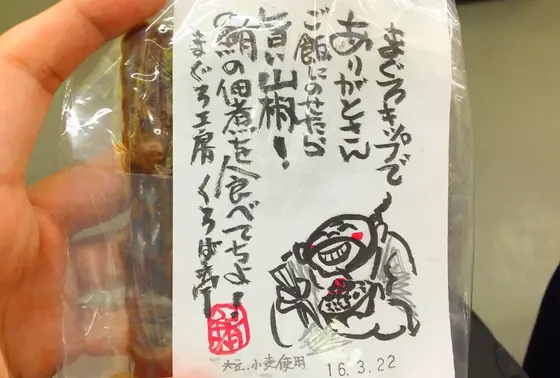 まぐろキップで
ありがとさん
ご飯にのせたら
旨い山椒!
の鮪の佃煮を食べてちょ!
まぐろ工房 くろば亭
大豆、小麦使用
16.3.22